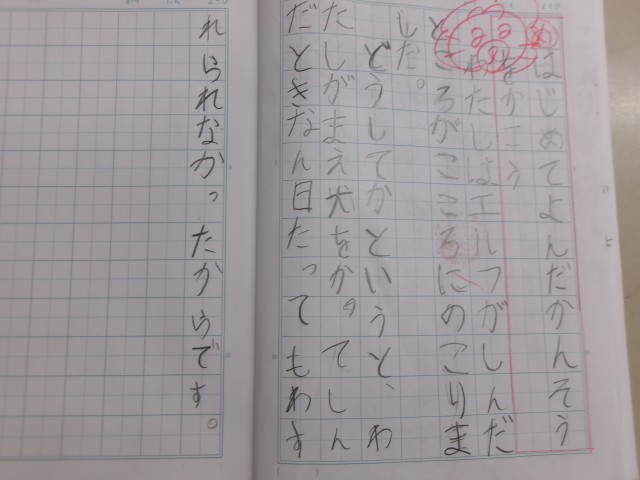 はじめてよんだかんそう
をかこう
わたしはエルフがしんだ
ところがこころにのこりま
した。
どうしてかというと、わ
たしがまえ犬をかってしん
だときなん日たってもわす
れられなかったからです。